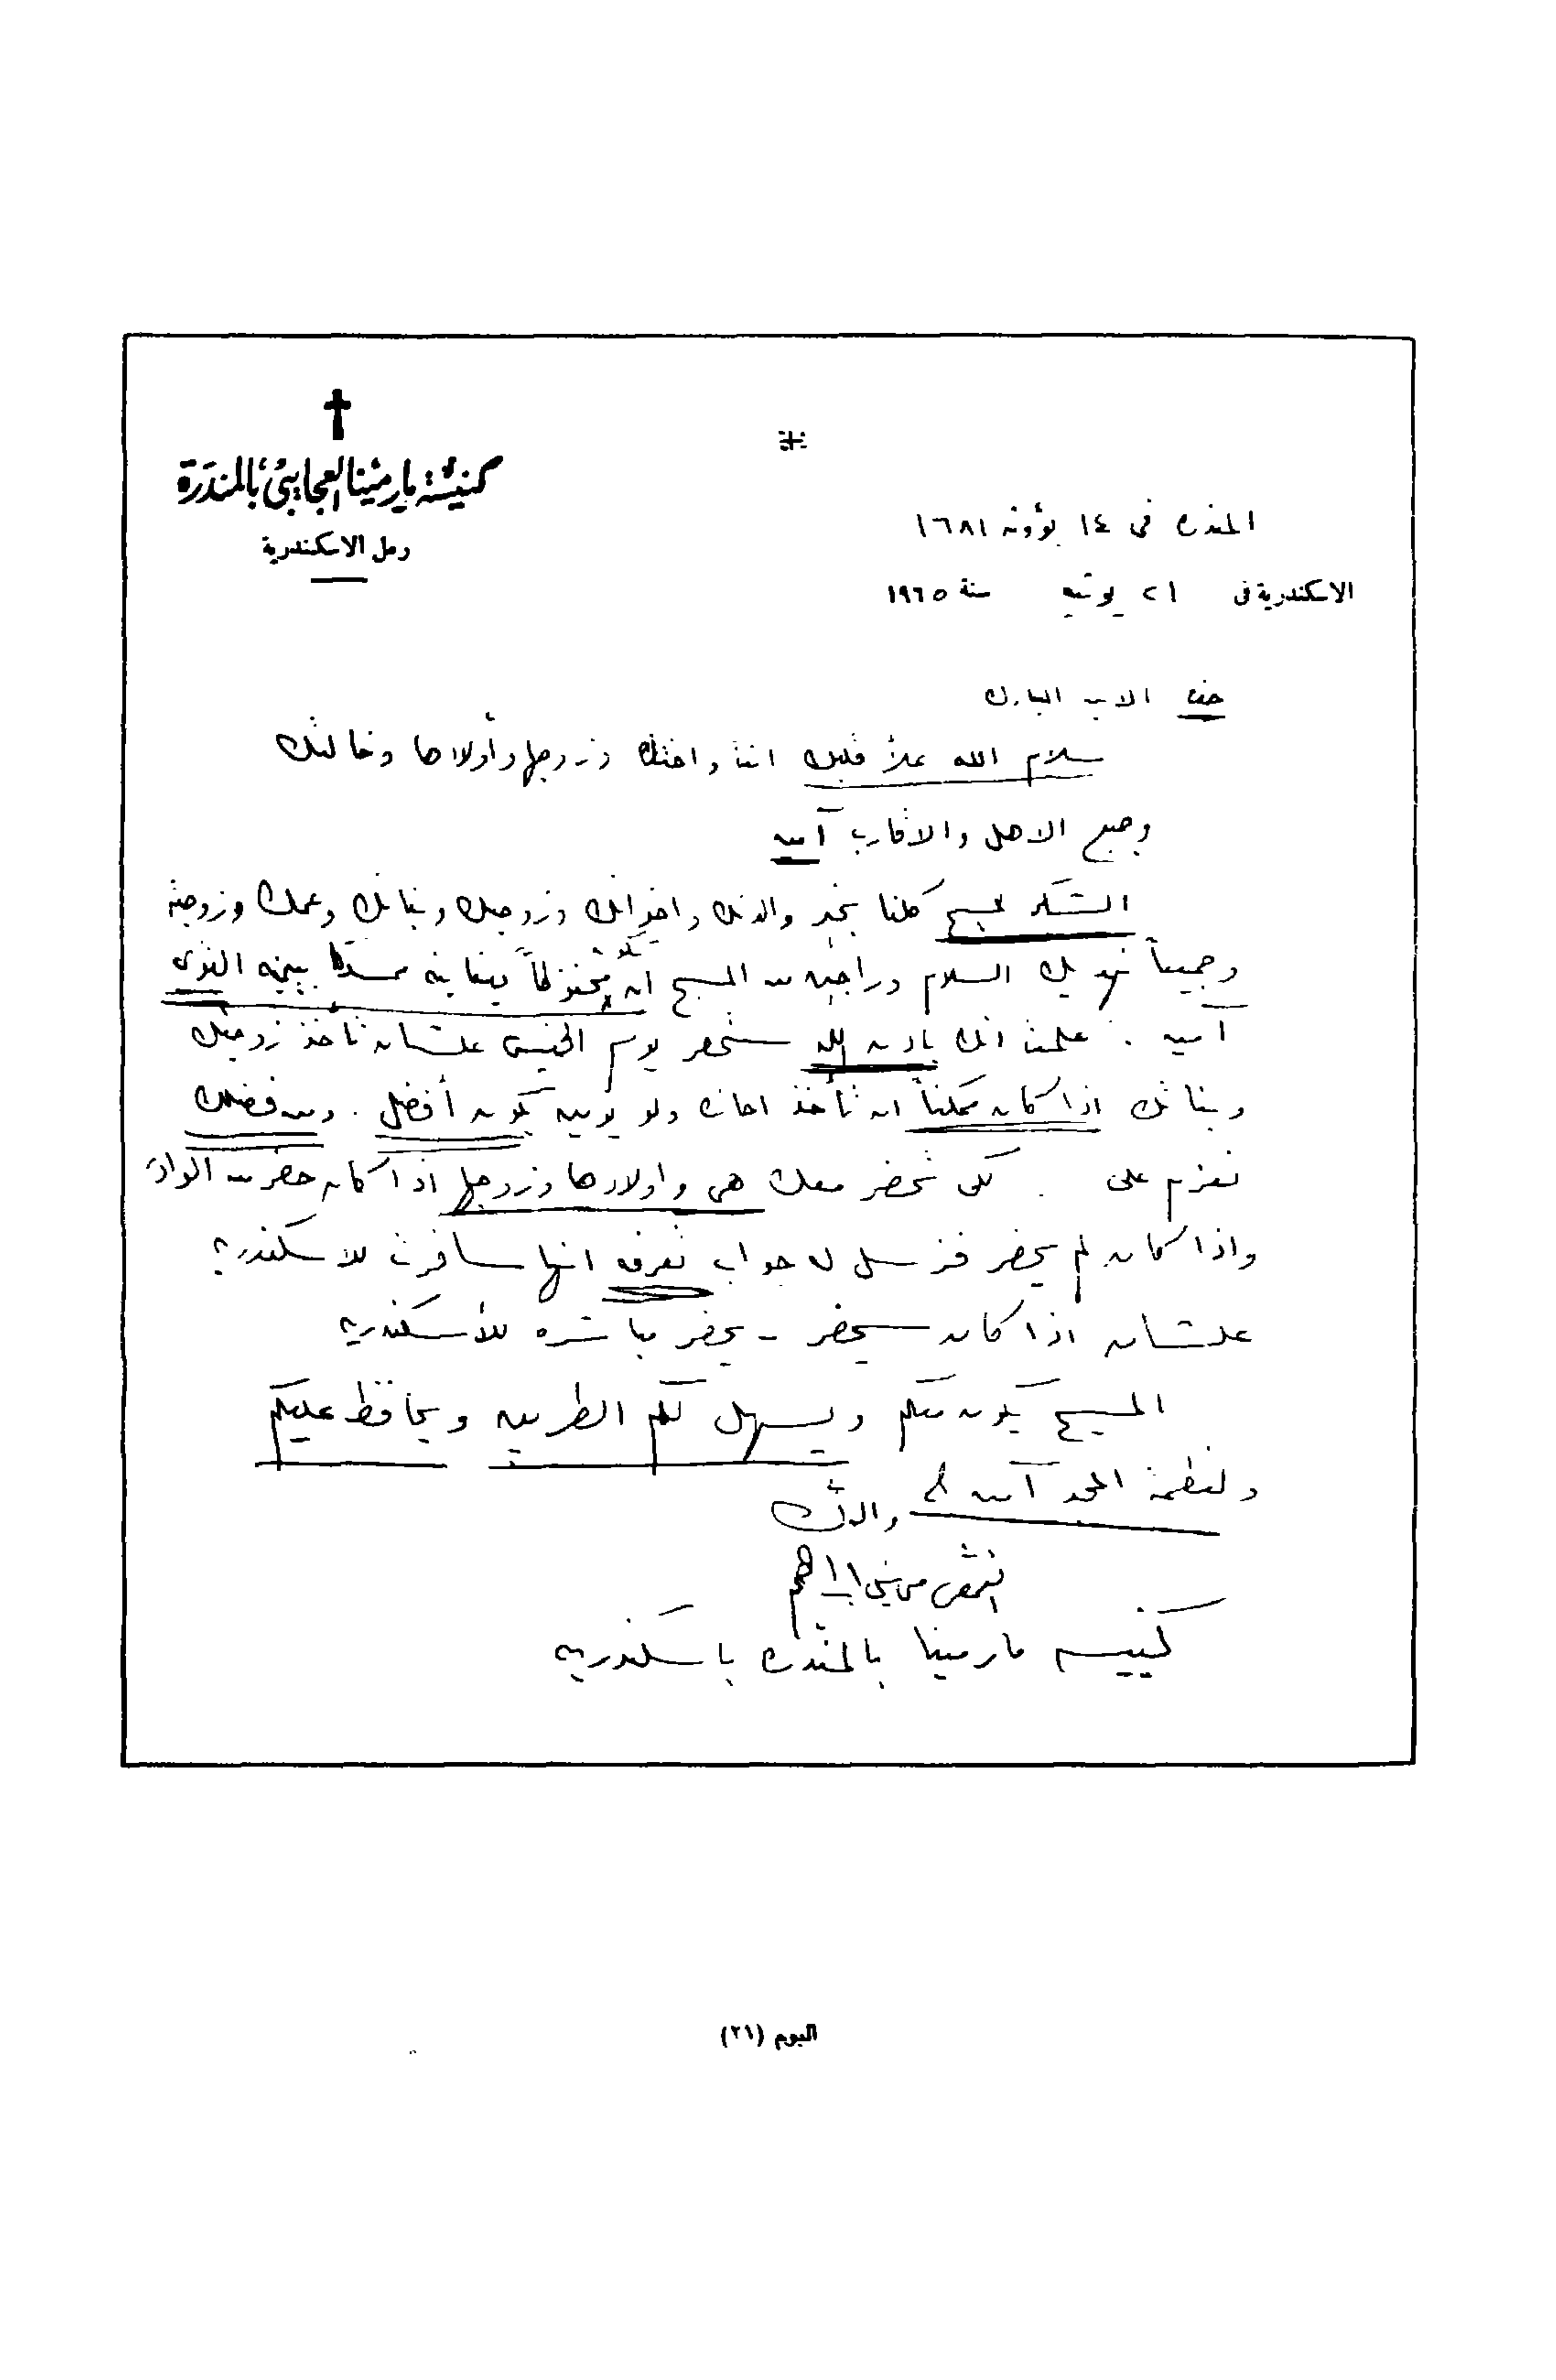 كنيسة مارمينا العجايبى بالمندرة
رمل الاسكندرية
المندره فى ١٤ بؤونه ١٦٨١
الاسكندرية فى ٢١ يونيه سنة ١٩٦٥
الابن المبارك
سلام الله يملأ قلبك انت واختك وزوجها وأولادها وخالتك
وجميع الاهل والاقارب آمين
الشكر للمسيح كلنا بخير والدتك واخواتك وزوجتك وبناتك وعمك وزوجته
وجميعاً نهديك السلام وراجين من المسيح ان تكون محفوظاً بعنايته مسنداً بيمينه القوى
آمين . علمنا انك باذن الله ستحضر يوم الخميس علشان تأخذ زوجتك
وبناتك اذا كان ممكناً ان تأخذ اجازه ولو يومين يكون أفضل . ومن فضلك
تعزم على . لكى تحضر معك هى واولادها وزوجها اذا كان حضر من
واذا كان لم يحضر فترسل له جواب تعرفه انها سافرت للاسكندريه
علشان اذا كان سيحضر - يحضر مباشره للأسكندريه
المسيح يكون معكم ويسهل لكم الطريق ويحافظ عليكم
ولعظمته المجد آمين
والدك
القمص مينى ابراهيم
كنيسه مارمينا بالمندره باسكندريه
البوم (٢١)